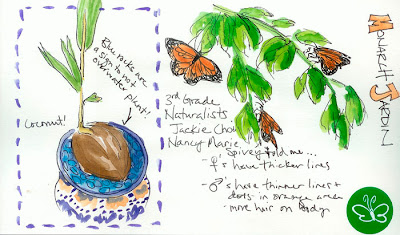 Blue rocks are
a sign to not
overwater plant!
Coconut!
3rd Grade
Naturalists
Jackie Chou
Nancy Marie
Spivey told me...
- ♀'s have thicker lines
- ♂'s have thinner lines +
dots in orange area
- more hair on body
MONARCH JARDIN